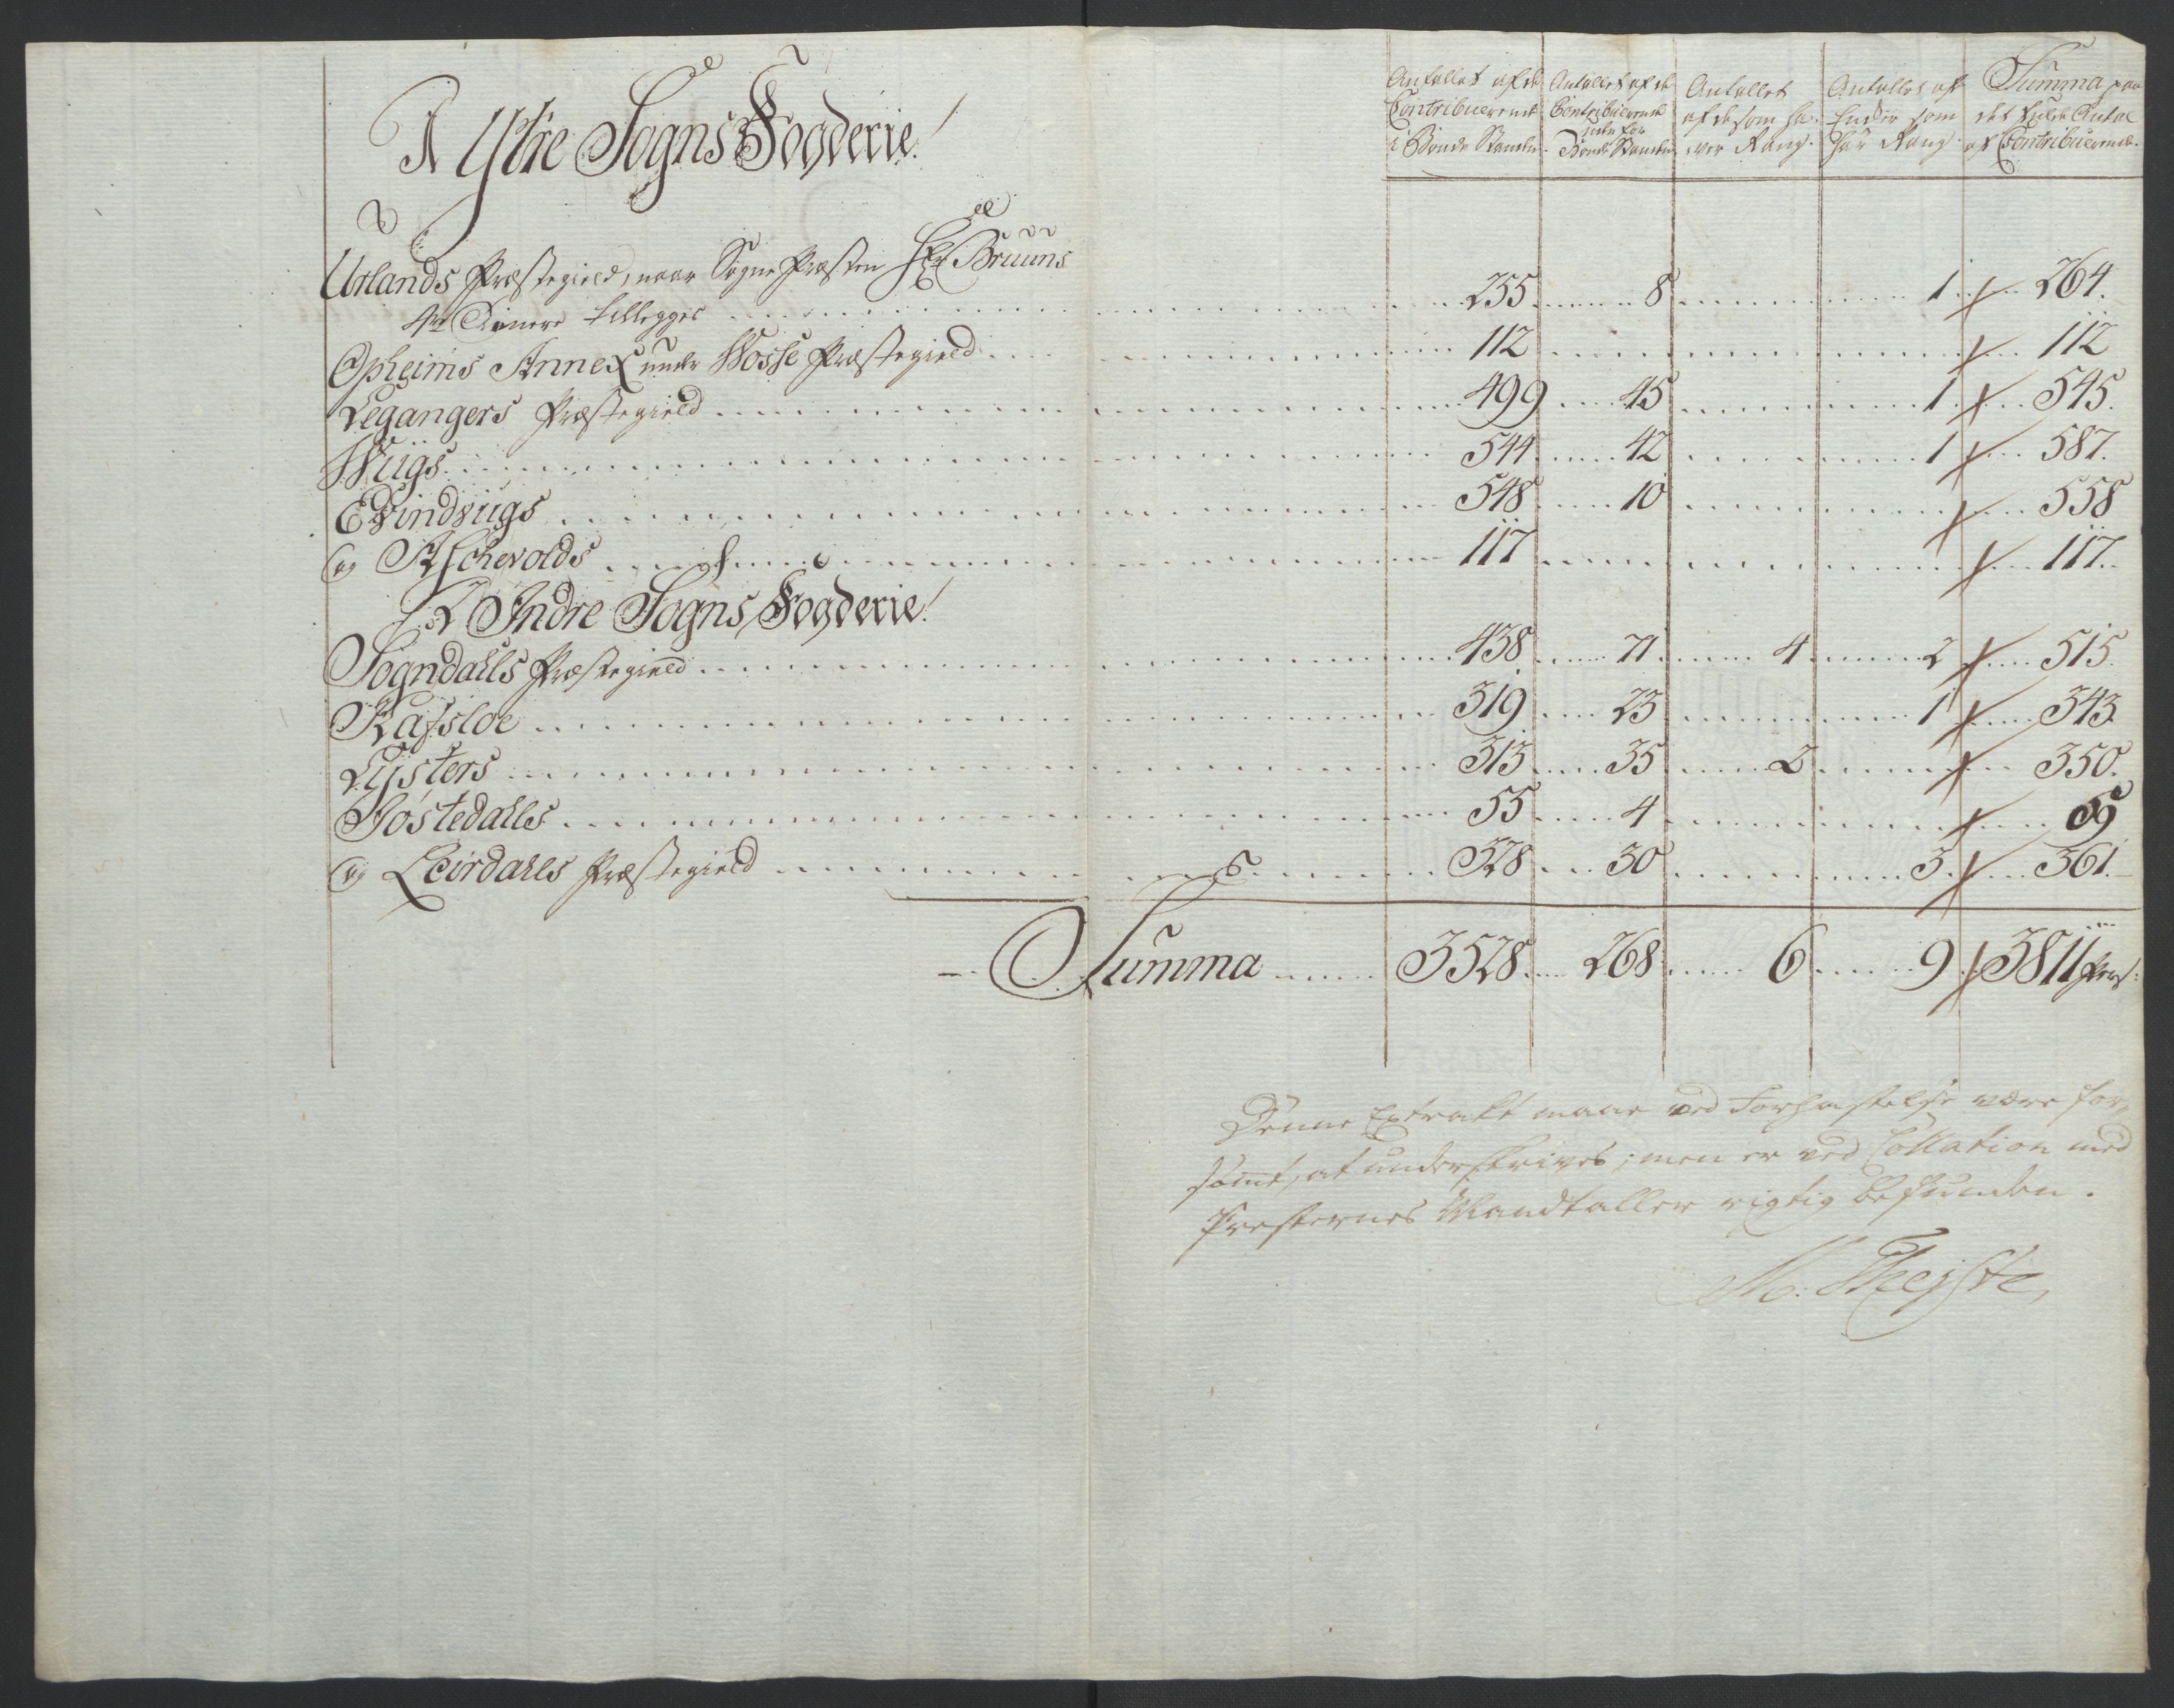 Antallet af de Contribuerende i Bonde Standen.
Antallet af de Contribuerende uden for Bonde Standen
Antallet af de som haver Rang.
Antallet af Enker som har Rang.
Summa paa det fulde Antal af Contribuerende.
I Ytre Sogns Fogderie!
Urlands Præstegield, naar Sogne Præsten Hr Bruuns
4re Tienere tillegges 255 8 1 264.
Opheims Annex under Wosse Præstegield 112 112
Leganger s Præstegield 499 45 1 545.
Wiigs 544 42 1 587.
Evindvigs 548 10 558
og Aschevolds 117 117.
I Indre Sogns Fogderie!
Sogndahls Præstegield 438 71 4 2 515.
Hafsloe 319 23 1 343.
Lysters 313 35 2 350.
Jostedahls 55 4 59
og Leirdahls Præstegield 328 30 3 361.
Summa 3528 268 6 9 3811 Pers:
Denne Extrakt maae ved Forhastelse være for-
sømt, at underskrives; men er ved Collation med
Presternes Mandtaller rigtig befunden.